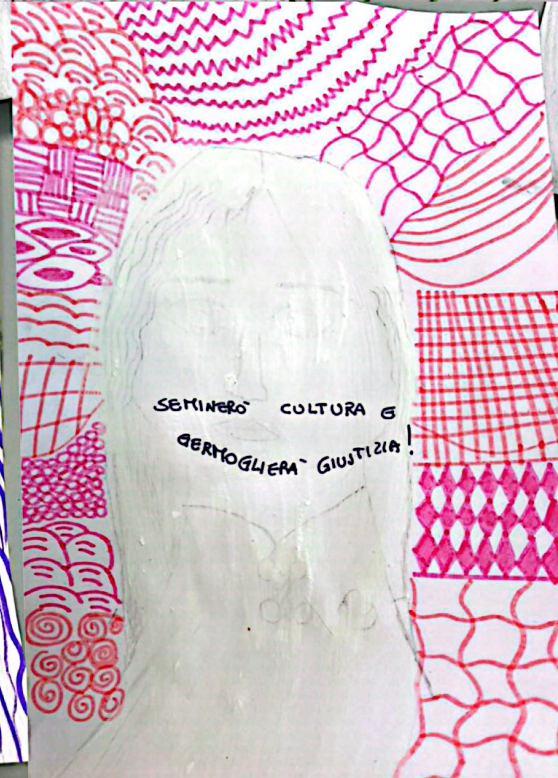 SEMINERÒ CULTURA E
GERMOGLIERÀ GIUSTIZIA!